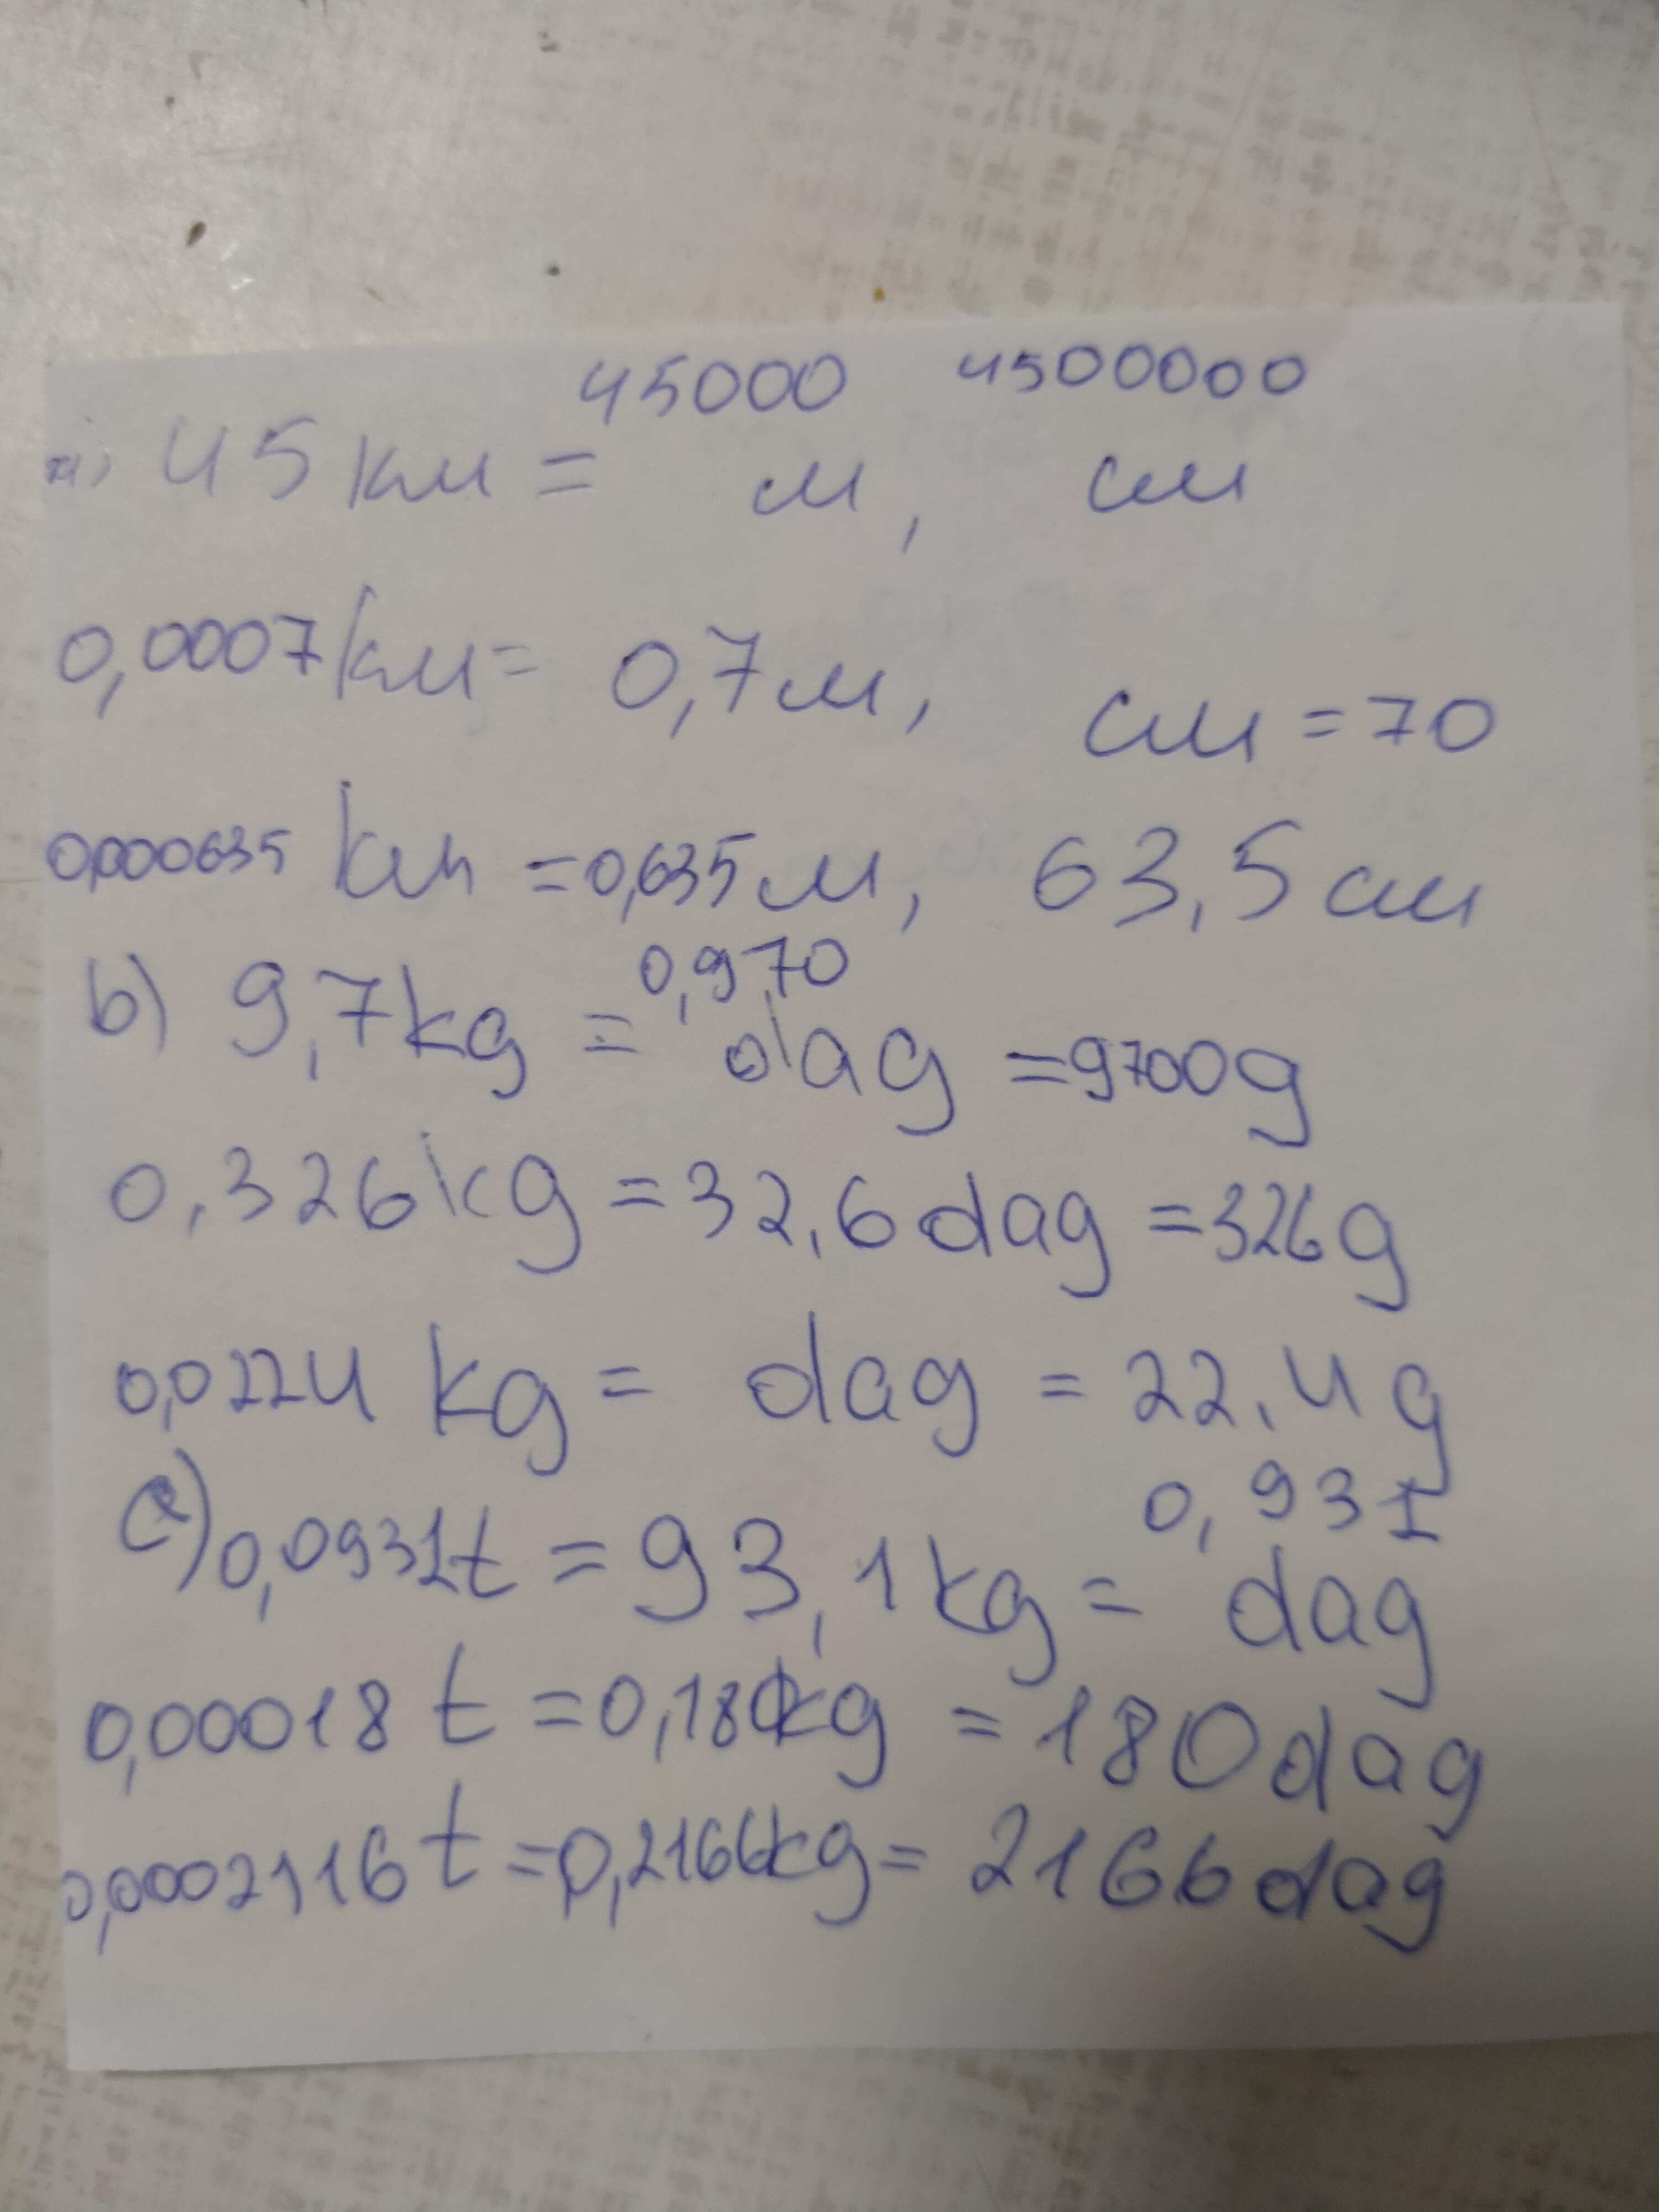 a) 45 км = 45000 м, 4500000 см
0,0007 км = 0,7 м, см = 70
0,000635 км = 0,635 м, 63,5 см
b) 9,7 kg = 0,970 dag = 9700 g
0,326 kg = 32,6 dag = 326 g
0,0224 kg = dag = 22,4 g
c) 0,0931 t = 93,1 kg = 0,931 dag
0,00018 t = 0,180 kg = 180 dag
0,0002116 t = 0,2166 kg = 2166 dag